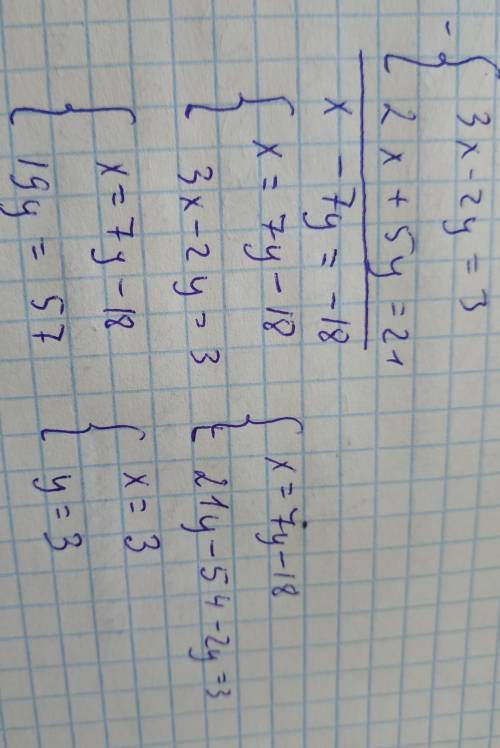 - { 3x - 2y = 3
{ 2x + 5y = 21
x - 7y = -18
{ x = 7y - 18
{ 3x - 2y = 3
{ x = 7y - 18
{ 21y - 54 - 2y = 3
{ x = 7y - 18
{ 19y = 57
{ x = 3
{ y = 3